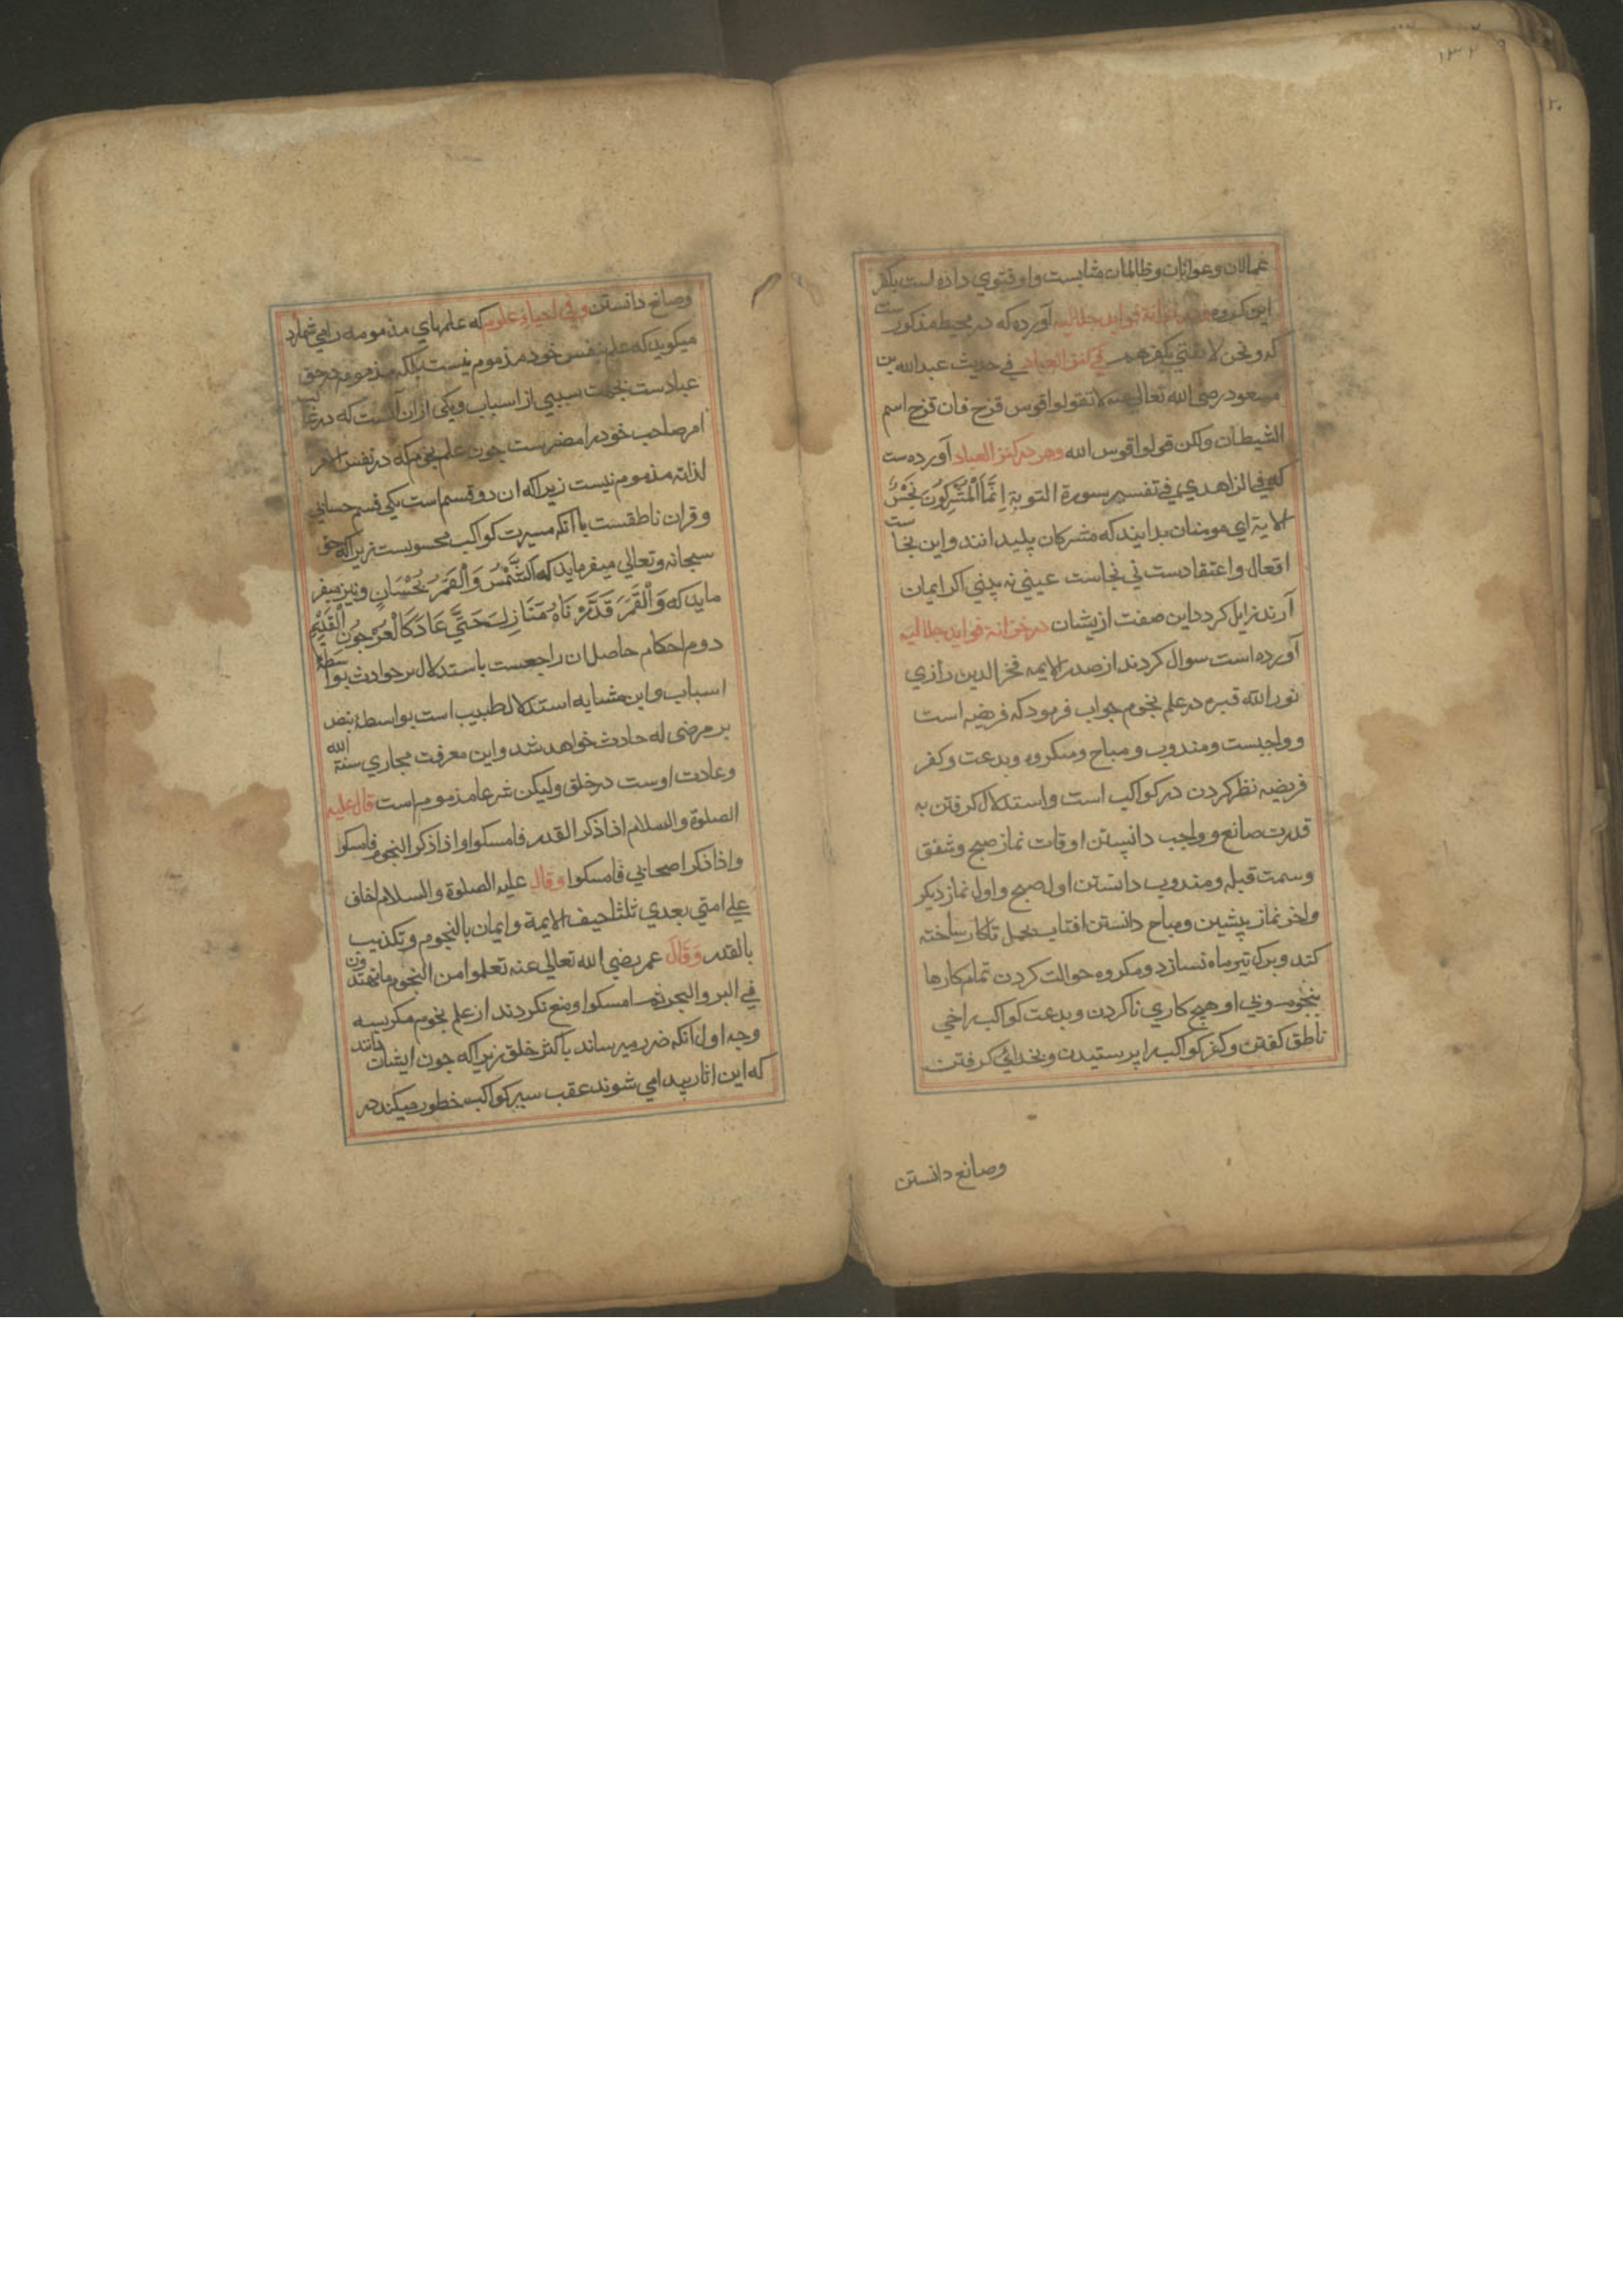 ۱۳۲
عمالان وعوانان وظالمان مثابست واو فتوي داده است بكفر
اين كروه در خزانة فوايد جلاليه آورده كه در محيط مذكورست
كه ونحن لا نفتي بكفرهم في كنز العباد في حديث عبد الله بن
مسعود رضي الله تعالى عنه لا تقولوا قوس قزح فان قزح اسم
الشيطان ولكن قولوا قوس الله وهم در كنز العباد آورده ست
كه في الزاهدي في تفسير سورة التوبة إنما المشركون نجس
الاية اي مومنان بدانيد كه مشركان پليدانند واين نجاست
افعال واعتقادست ني نجاست عيني نه بدني اكر ايمان
آرند زايل كردد اين صفت ازيشان در خزانة فوايد جلاليه
آورده است سوال كردند از صدر الايمه فخر الدين رازي
نور الله قبره در علم نجوم جواب فرمود كه فريضه است
وواجبست ومندوب ومباح ومكروه وبدعت وكفر
فريضه نظر كردن در كواكب است واستدلال كرفتن به
قدرت صانع وواجب دانستن اوقات نماز صبح وشفق
وسمت قبله ومندوب دانستن اول صبح واول نماز ديكر
واخر نماز پيشين ومباح دانستن افتاب بحمل تا كار ساخته
كند وبرك تير ماه نسازد ومكروه حوالت كردن تمام كارها
بنجوم وبي او هيچ كاري ناكردن وبدعت كواكب را حي
ناطق كفتن وكفر كواكب را پرستيدن وبخدائي كرفتن
وصانع دانستن
وصانع دانستن وفي احياء علوم كه علمهاي مذمومه را مي شمارد
ميكويد كه علم بنفس خود مذموم نيست بلكه مذمومه در حق
عبادست بجهت سببي از اسباب ويكي ازان آنست كه در غالب
امر صاحب خود را مضرست چون علم نجوم كه در نفس الامر
لذاته مذموم نيست زيراكه ان دو قسم است يكي قسم حسابي
وقران ناطقست باآنكه مسيرت كواكب محسوبست زيراكه حق
سبحانه وتعالي ميفرمايد كه الشمس والقمر بحسبان ونيز ميفر
مايد كه والقمر قدرناه منازل حتي عاد كالعرجون القديم
دوم احكام حاصل ان راجعست باستدلال بر حوادث بواسطه
اسباب واين مشابه استدلال طبيب است بواسطه نبض
بر مرضى كه حادث خواهد شد واين معرفت مجاري سنة الله
وعادت اوست در خلق وليكن شرعا مذموم است قال عليه
الصلوة والسلام اذا ذكر القدر فامسكوا واذا ذكر النجوم فامسكوا
واذا ذكر اصحابي فامسكوا وقال عليه الصلوة والسلام اخاف
علي امتي بعدي ثلثا حيف الايمة وايمان بالنجوم وتكذيب
بالقدر وقال عمر رضي الله تعالي عنه تعلموا من النجوم ما تهتدون
في البر والبحر ثم امسكوا ومنع نكردند از علم نجوم مكر بسه
وجه اول انكه ضرر ميرساند باكثر خلق زيراكه چون ايشان دانند
كه اين اثار پيدا مي شوند عقب سير كواكب خطور ميكند در